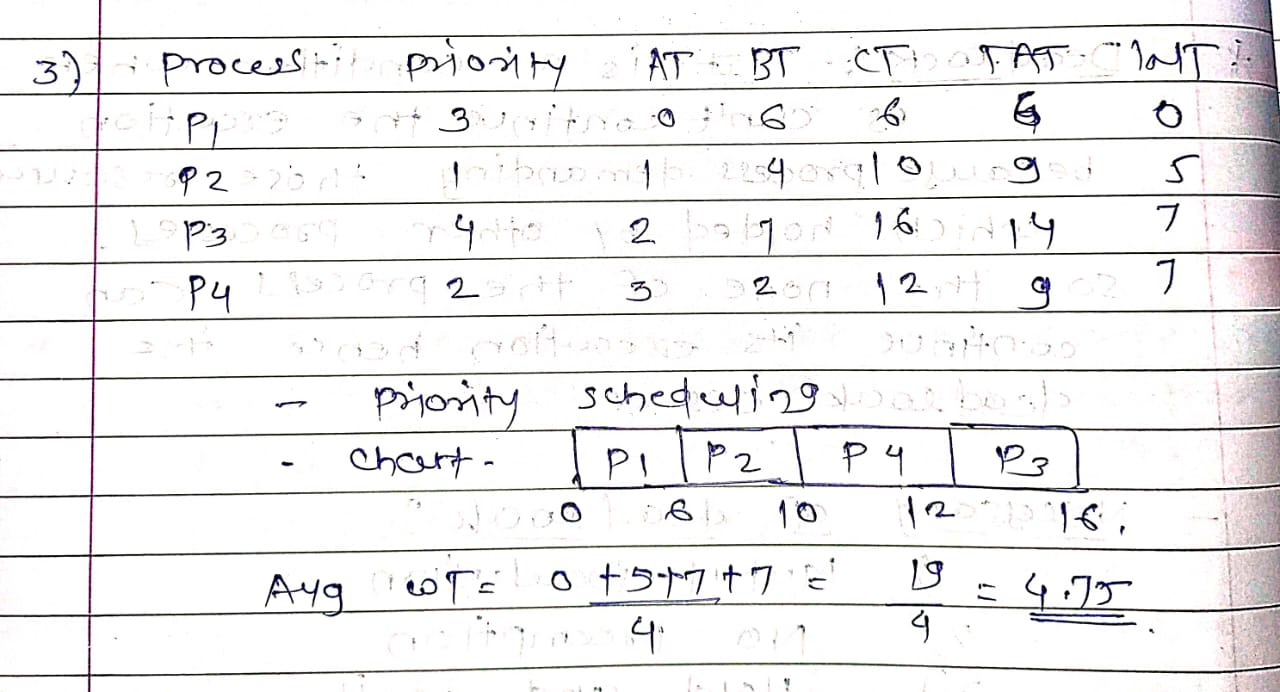 3) process priority AT BT CT TAT WT
P1 3 0 6 6 6 0
P2 1 1 4 10 9 5
P3 4 2 7 16 14 7
P4 2 3 2 12 9 7
- priority scheduling
- chart - P1 P2 P4 P3
0 6 10 12 16.
Avg WT = 0+5+7+7 / 4 = 19 / 4 = 4.75